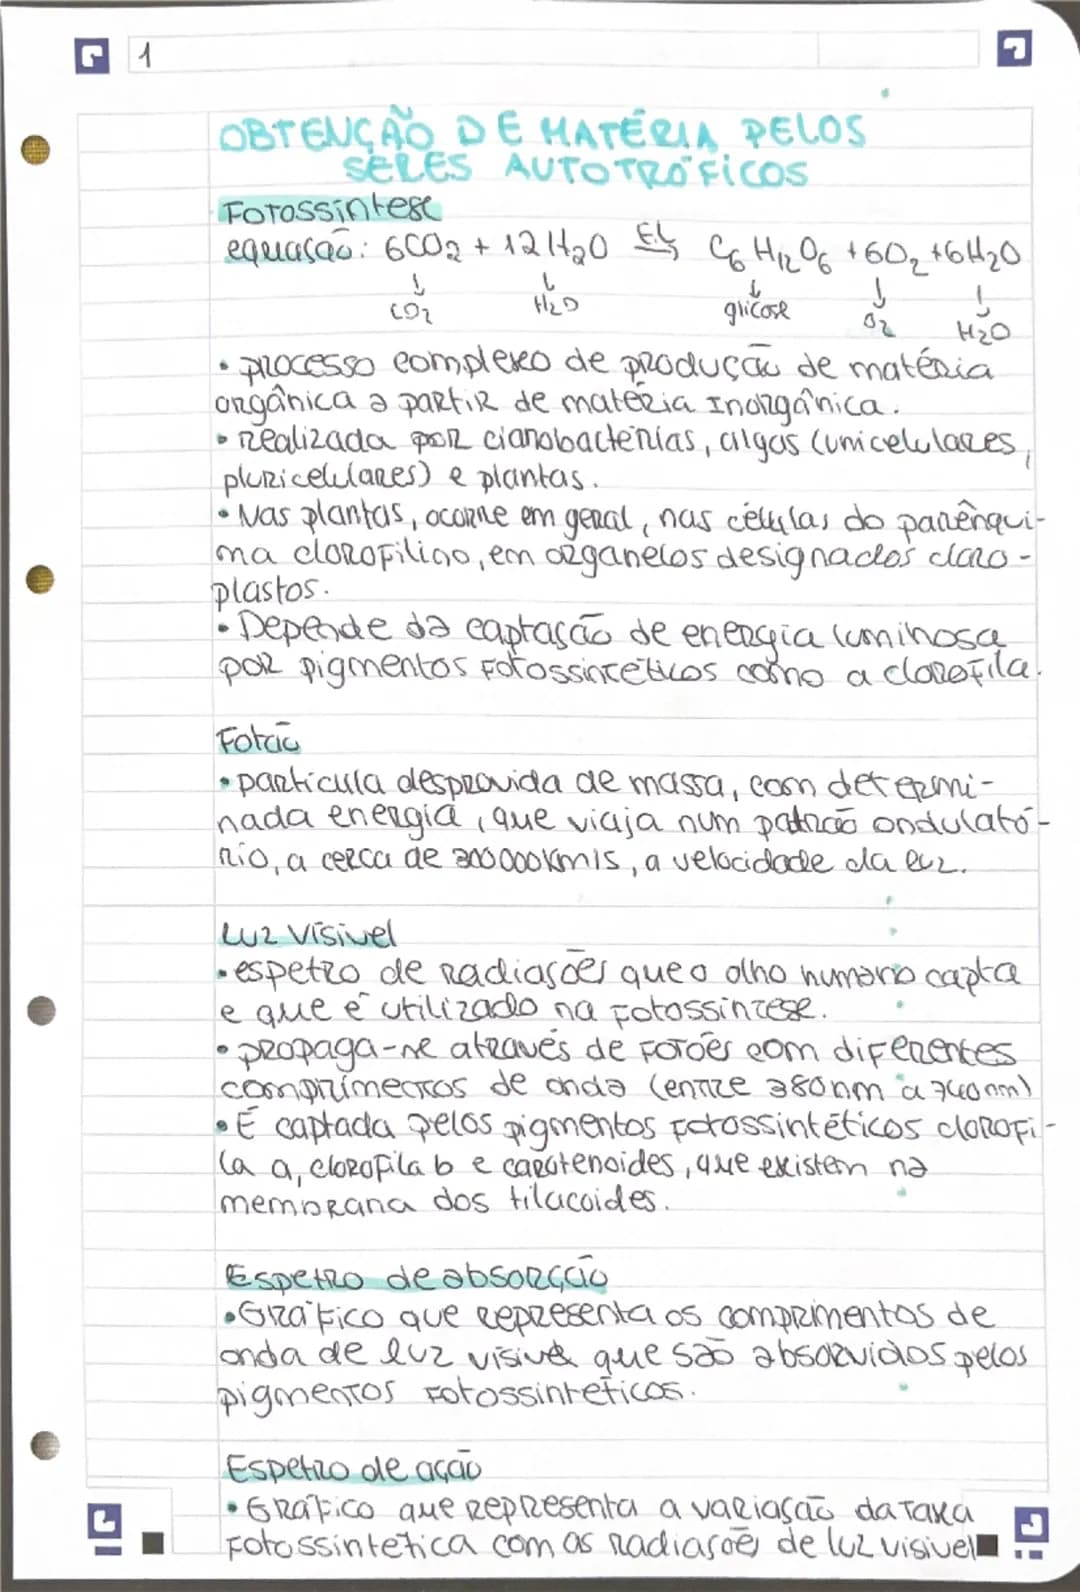 1
OBTENÇÃO DE MATÉRIA PELOS
SERES AUTOTRÓFICOS
Fotossíntese
equação: 6CO2 + 12H2O E.L→ C6H12O6 + 6O2 + 6H2O
↓ ↓ ↓ ↓ ↓
CO2 H2O glicose O2 H2O
• processo complexo de produção de matéria
orgânica a partir de matéria Inorgânica.
• realizada por cianobactérias, algas (unicelulares,
pluricelulares) e plantas.
• Nas plantas, ocorre em geral, nas células do parênqui-
ma clorofilino, em organelos designados cloro-
plastos.
• Depende da captação de energia luminosa
por pigmentos fotossintéticos como a clorofila.
Fotão
• partícula desprovida de massa, com determi-
nada energia, que viaja num padrão ondulató-
rio, a cerca de 300000km/s, a velocidade da luz.
Luz Visível
• espetro de radiações que o olho humano capta
e que é utilizado na fotossíntese.
• propaga-se através de fotões com diferentes
comprimentos de onda (entre 380nm a 740nm)
• É captada pelos pigmentos fotossintéticos clorofi-
la a, clorofila b e carotenoides, que existem na
membrana dos tilacoides.
Espetro de absorção
• Gráfico que representa os comprimentos de
onda de luz visível que são absorvidos pelos
pigmentos fotossintéticos.
Espetro de ação
• Gráfico que representa a variação da taxa
fotossintética com as radiações de luz visível